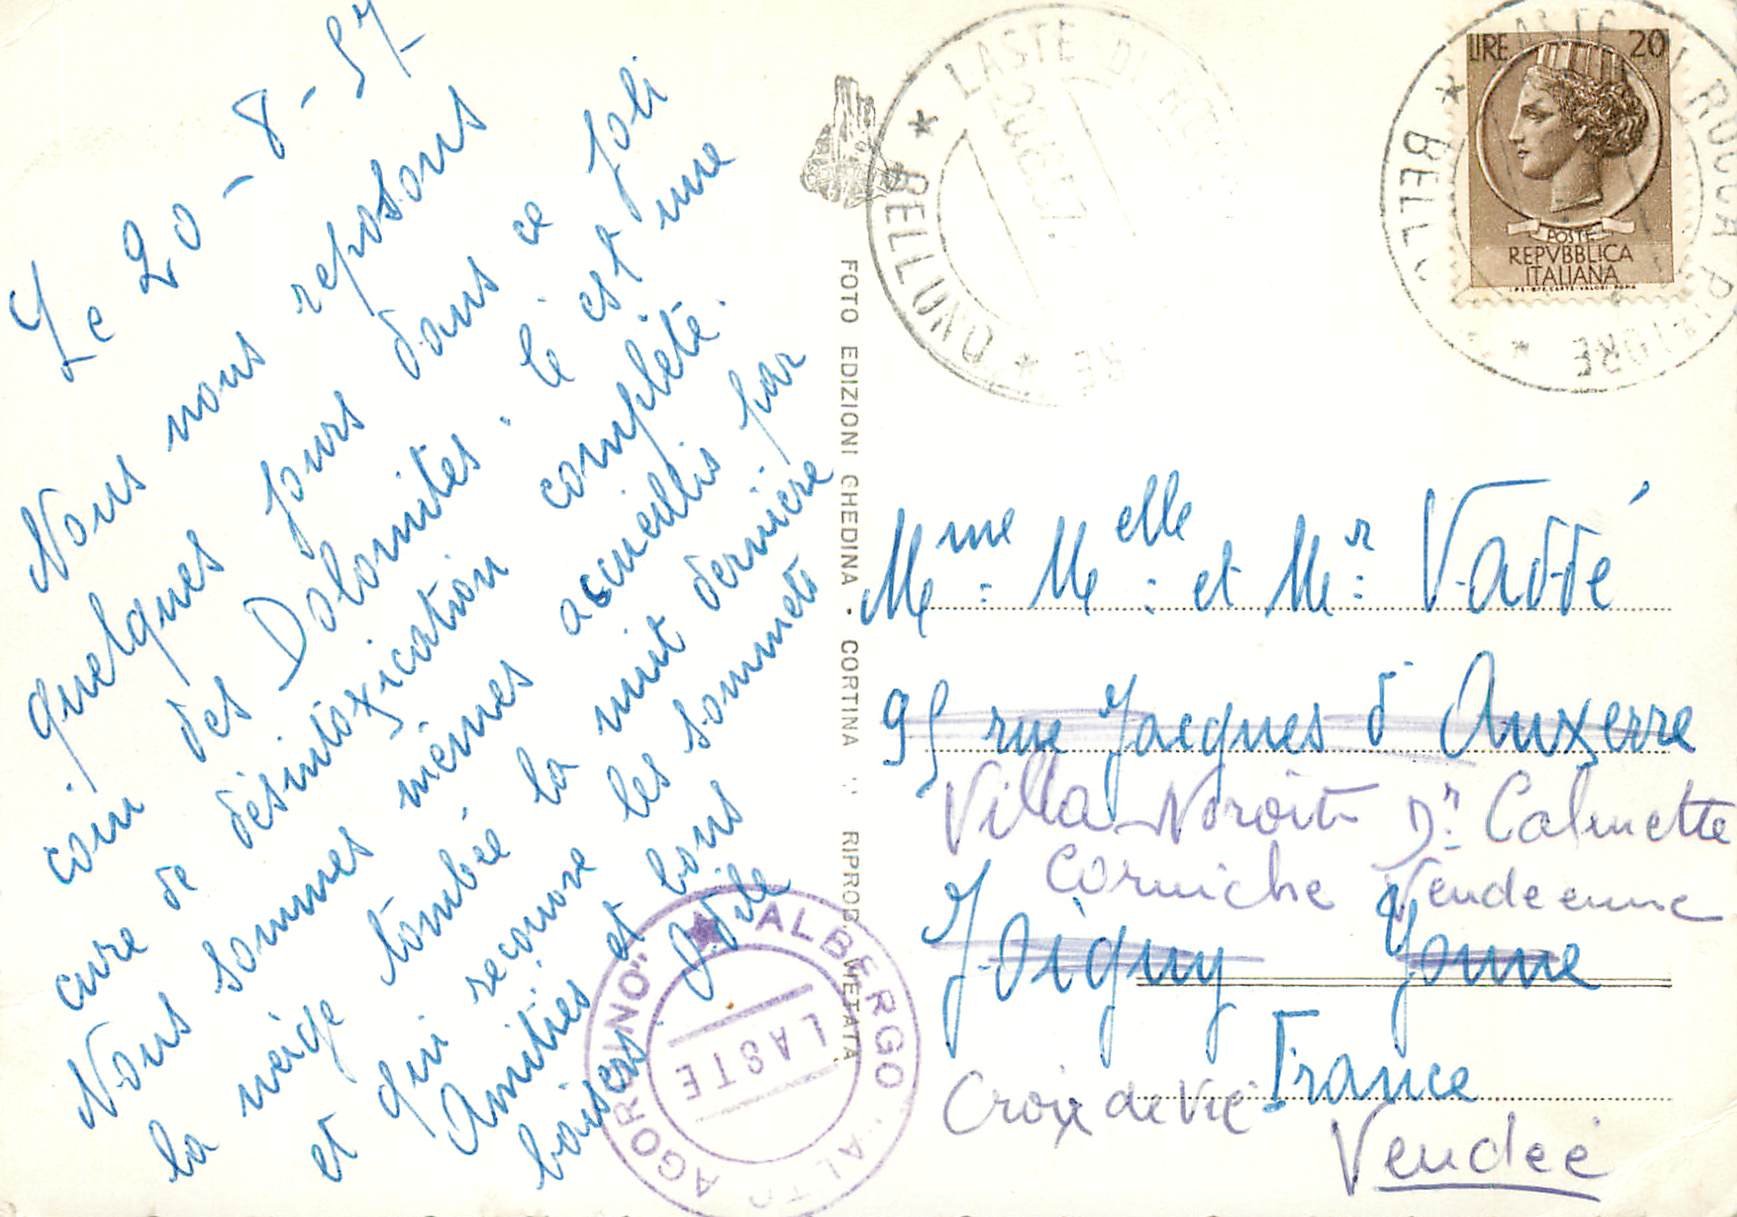 Le 20-8-57
Nous nous reposons
quelques jours dans ce joli
coin des Dolomites. Ce est une
cure de désintoxication complète.
Nous sommes mêmes accueillis par
la neige tombée la nuit dernière
et qui recouvre les sommets
Amitiés et bons
baisers. Odile
FOTO EDIZIONI GHEDINA · CORTINA
RIPROD. VIETATA
ALBERGO "ALTO AGORDINO"
LASTE
LASTE DI ROCCA
20.8.57
BELLUNO
LASTE DI ROCCA PIETORE
BELLUNO
LIRE 20
POSTE
REPVBBLICA
ITALIANA
Mme: Melle: et Mr: Vaddé
95 rue Jacques d'Auxerre
Villa Noroit Dr. Calmette
Corniche Vendeenne
Joigny Yonne
France
Croix de Vie
Vendée